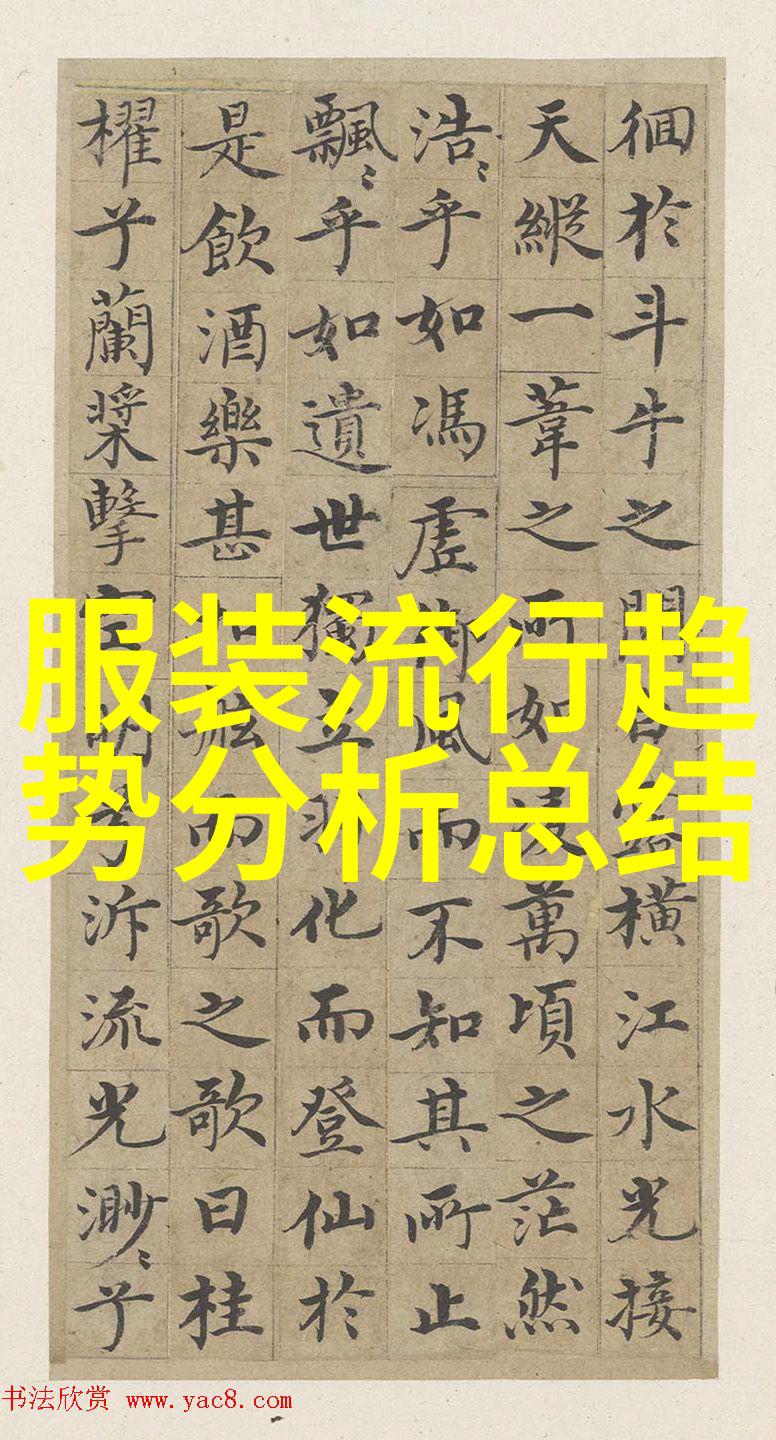 徊於斗牛之間白露橫江水光接
天縱一葦之所如凌萬頃之茫然
浩〻乎如馮虛御風而不知其所止
飄〻乎如遺世獨立羽化而登仙於
是飲酒樂甚扣舷而歌之歌曰桂
櫂兮蘭槳擊空明兮泝流光渺〻兮
服装流行趋
势分析总结
书法欣赏 www.yac8.com